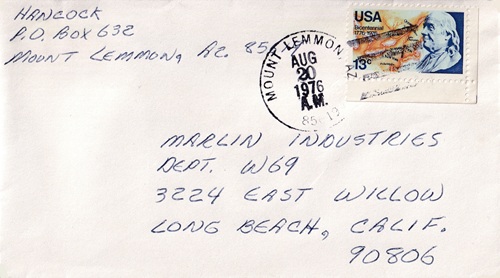 HANCOCK
P.O. BOX 632
MOUNT LEMMON, AZ. 85
MOUNT LEMMON,
AUG
20
1976
A.M.
USA
Bicentennial
1776-1976
13c
MARLIN INDUSTRIES
DEPT. W69
3224 EAST WILLOW
LONG BEACH, CALIF.
90806